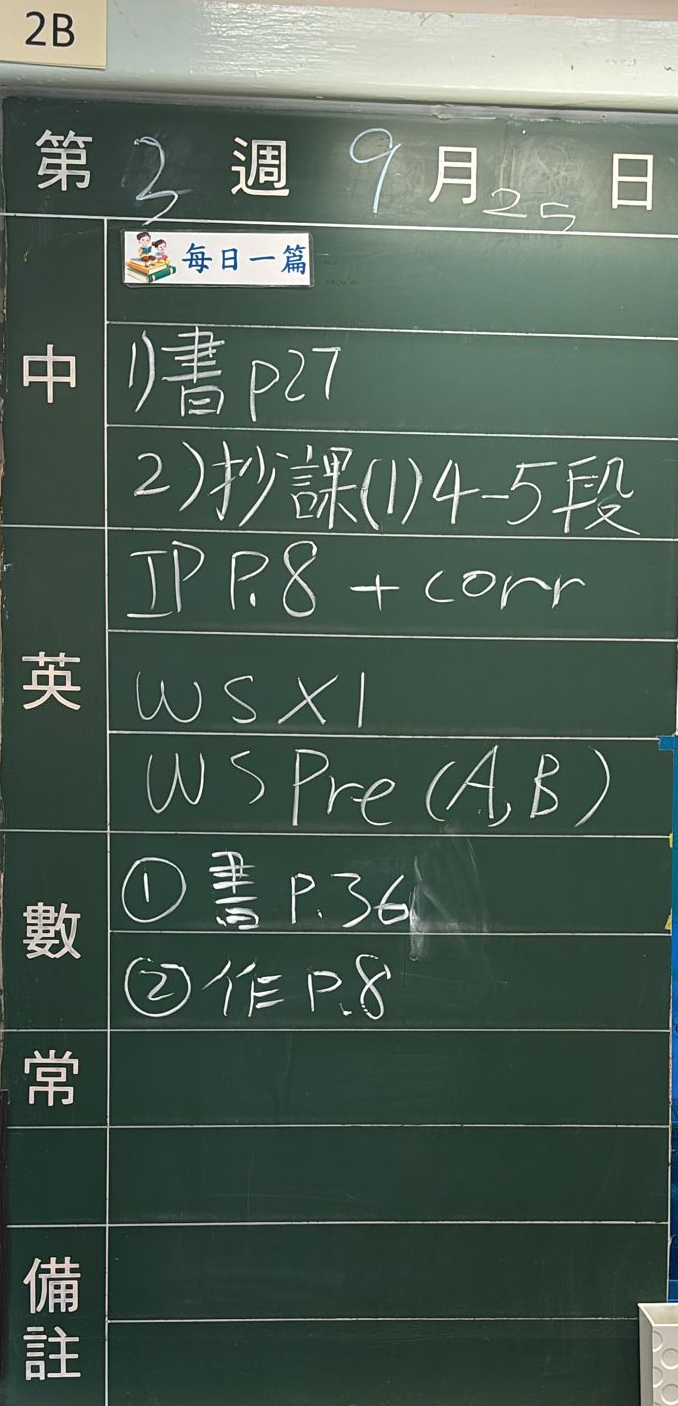 2B
第 3 週 9 月 25 日
中
每日一篇
1)書 p27
2)抄課(1)4-5段
英
IP P.8 + corr
WS X 1
WS Pre (A, B)
數
① 書 P.36
② 作 P.8
常
備註